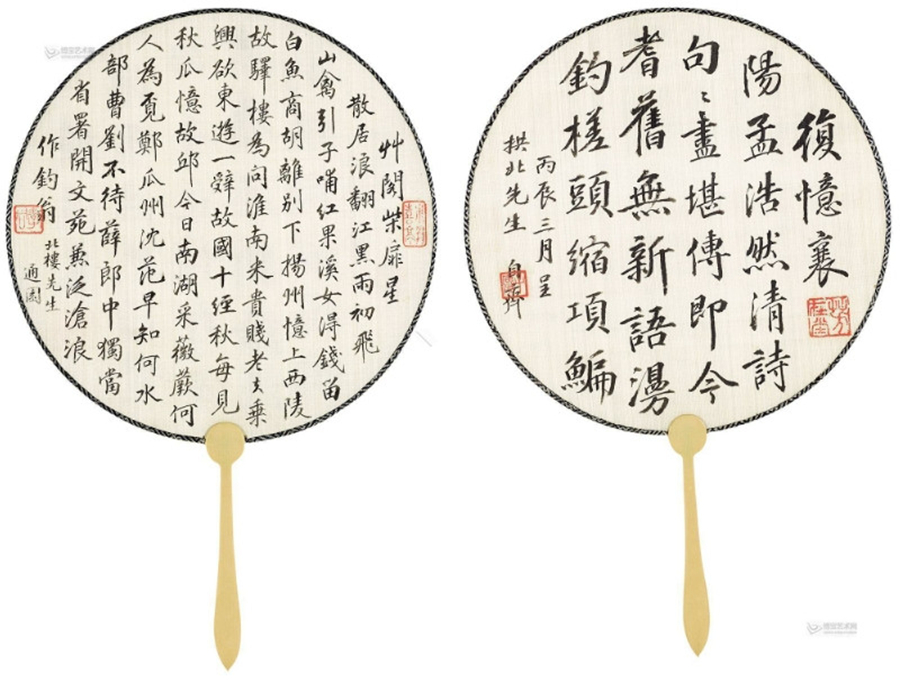 艸閣柴扉星
散居浪翻江黑雨初飛
山禽引子哺紅果溪女得錢留
白魚商胡離別下揚州憶上西陵
故驛樓為問淮南米貴賤老夫乘
興欲東遊一辭故國十經秋每見
秋瓜憶故邱今日南湖采薇蕨何
人為覓鄭瓜州沈范早知何水
部曹劉不待薛郎中獨當
省署開文苑兼泛滄浪
作釣翁
北樓先生
通
復憶襄
陽孟浩然清詩
句〻盡堪傳即今
耆舊無新語漫
釣槎頭縮項鯿
丙辰三月呈
拱北先生 自齊